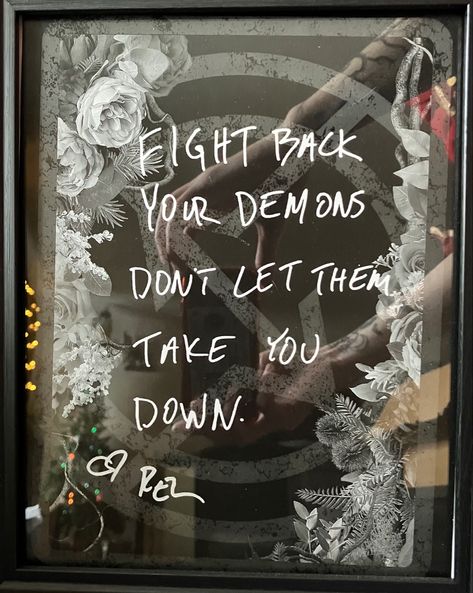 FIGHT BACK
YOUR DEMONS
DON'T LET THEM
TAKE YOU
DOWN.